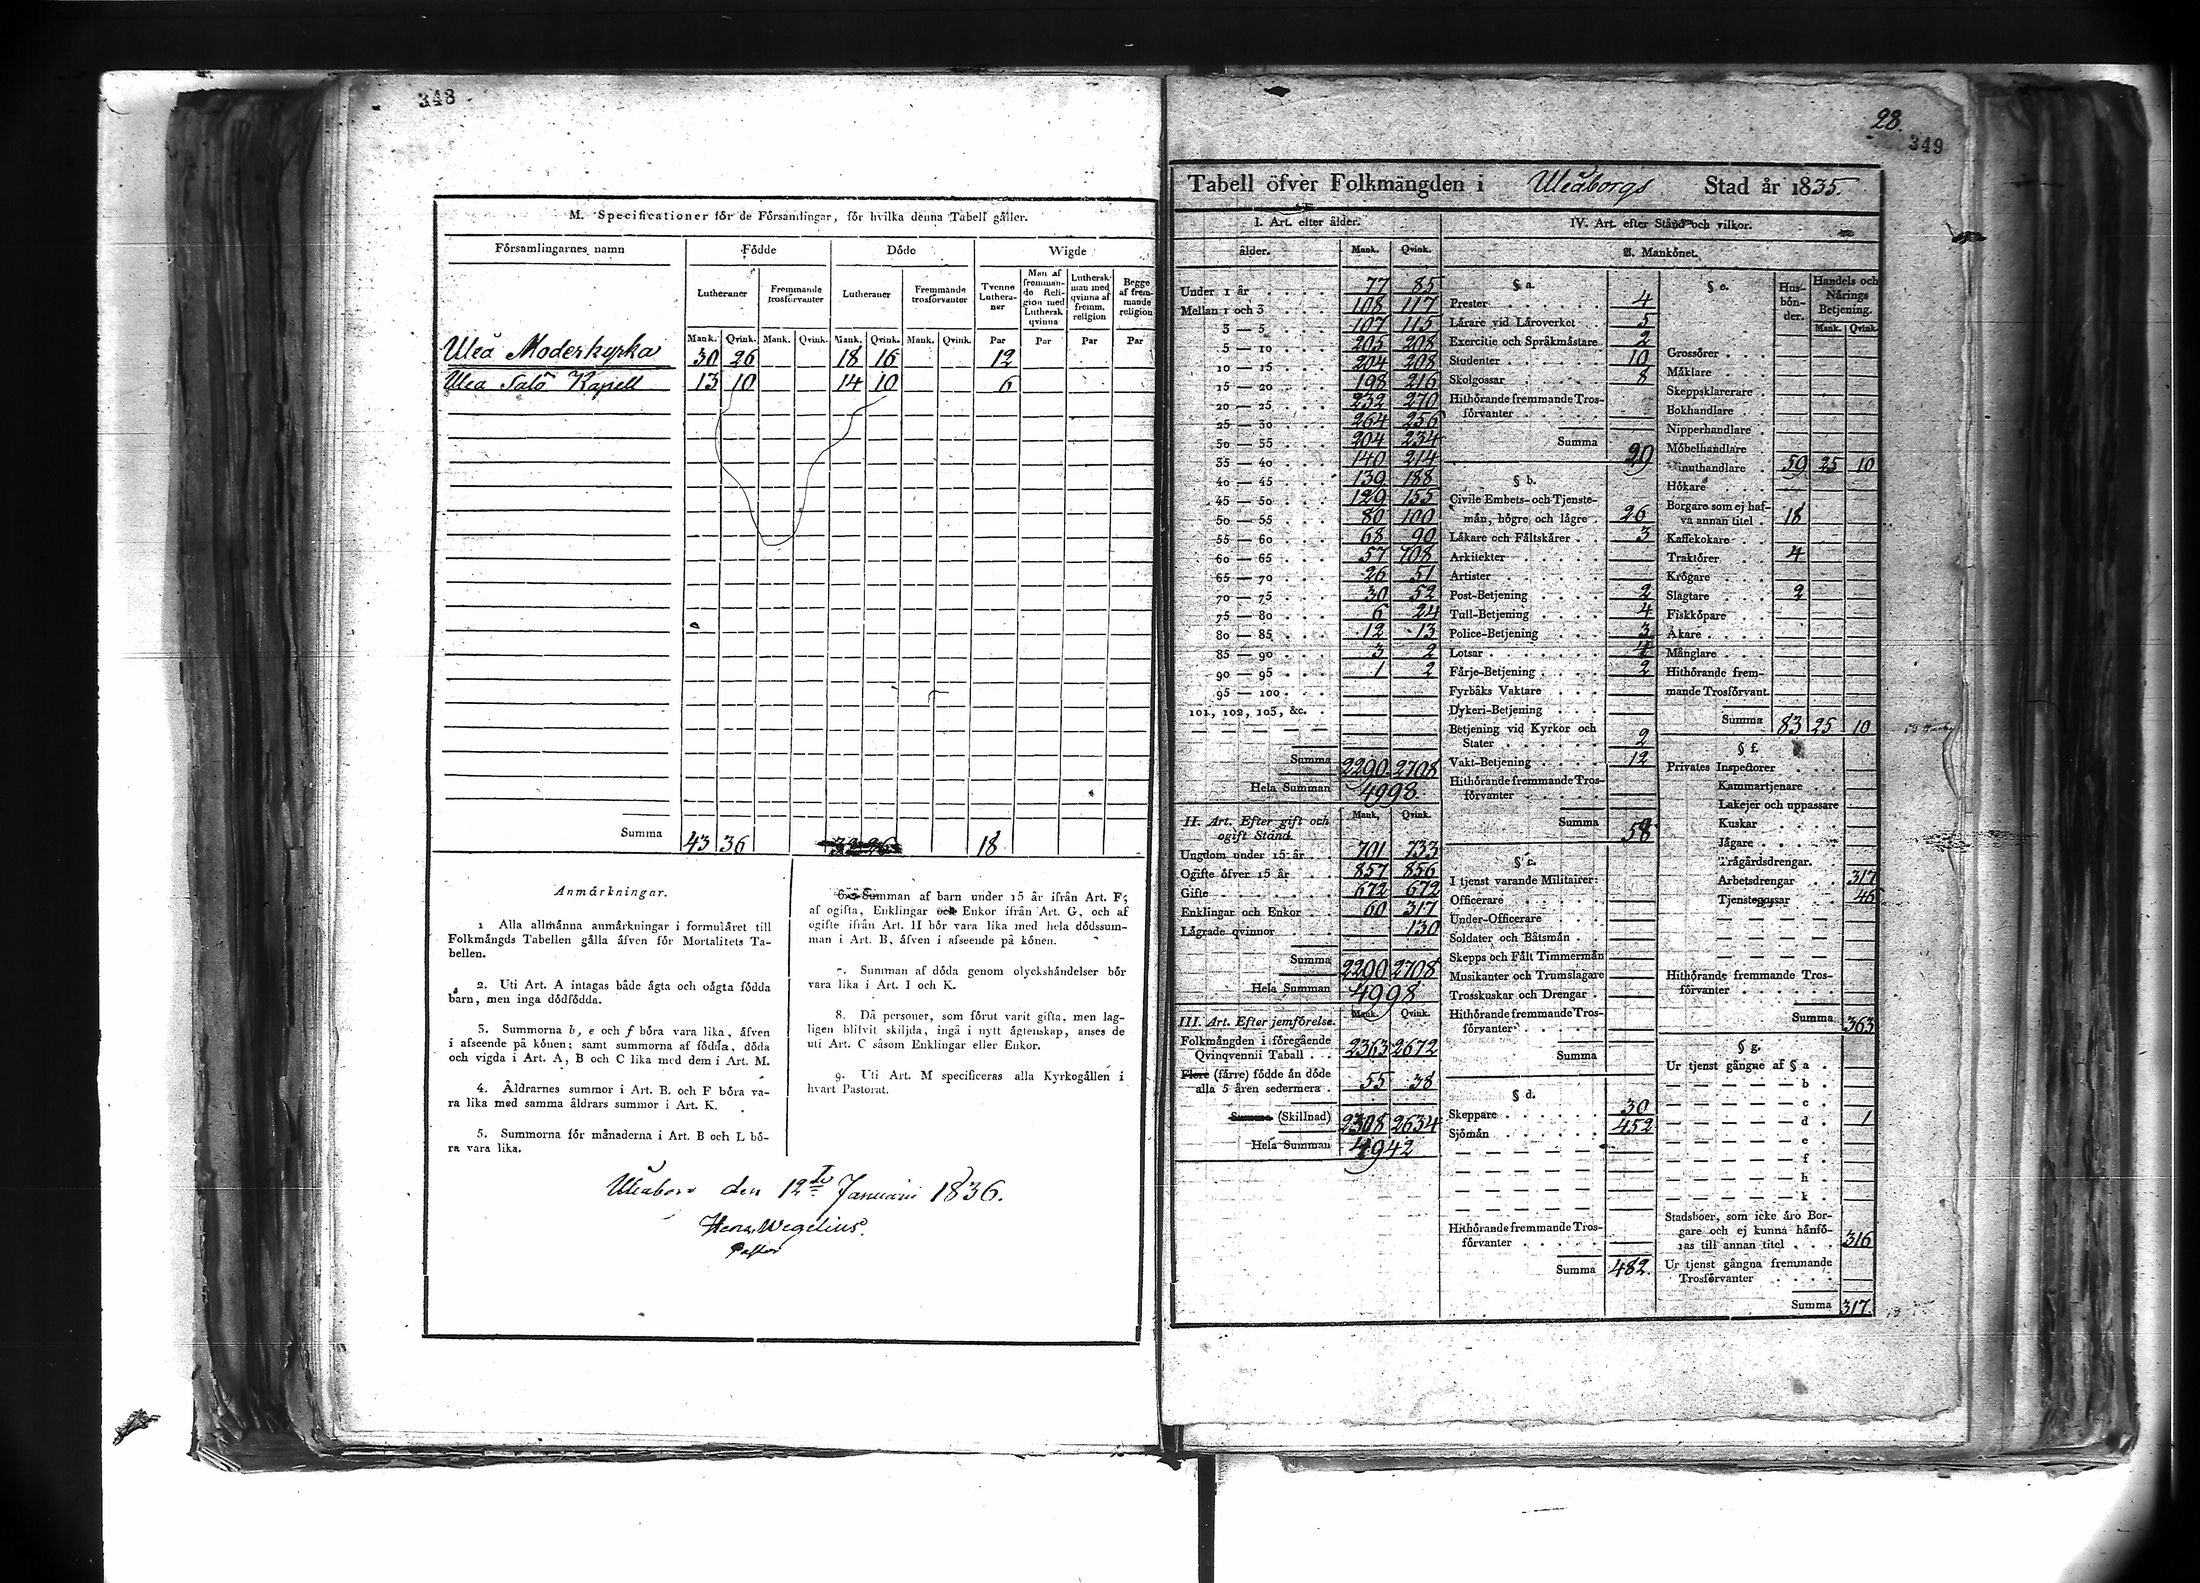 348
M. Specificationer för de Församlingar, för hvilka denna Tabell gäller.
Församlingarnes namn Födde Döde Wigde
Lutheraner Fremmande trosförvanter Lutheraner Fremmande trosförvanter Tvenne Lutheraner Man af fremmande Religion med Luthersk qvinna Luthersk man med qvinna af fremm. religion Begge af fremmande religion
Mank. Qvink. Mank. Qvink. Mank. Qvink. Mank. Qvink. Par Par Par Par
Uleå Moderkyrka 30 26 18 16 12
Uleå Salo Kapell 13 10 14 10 6
Summa 43 36 18
Anmärkningar.
1 Alla allmänna anmärkningar i formuläret till
Folkmängds Tabellen gälla äfven för Mortalitets Ta-
bellen.
2. Uti Art. A intagas både ägta och oägta födda
barn, men inga dödfödda.
3. Summorna b, e och f böra vara lika, äfven
i afseende på könen; samt summorna af födda, döda
och vigda i Art. A, B och C lika med dem i Art. M.
4. Åldrarnes summor i Art. B. och F böra va-
ra lika med samma åldrars summor i Art. K.
5. Summorna för månaderna i Art. B och L bö-
ra vara lika.
6. Summan af barn under 15 år ifrån Art. F;
af ogifta, Enklingar och Enkor ifrån Art. G, och af
ogifte ifrån Art. H bör vara lika med hela dödssum-
man i Art. B, äfven i afseende på könen.
7. Summan af döda genom olyckshändelser bör
vara lika i Art. I och K.
8. Då personer, som förut varit gifta, men lag-
ligen blifvit skiljda, ingå i nytt ägtenskap, anses de
uti Art. C såsom Enklingar eller Enkor.
9. Uti Art. M specificeras alla Kyrkogällen i
hvart Pastorat.
Uleåborg den 12te Januarii 1836.
Henr. Wegelius.
Pastor
28.
349
Tabell öfver Folkmängden i Uleåborgs Stad år 1835.
I. Art. efter ålder.
ålder. Mank. Qvink.
Under 1 år 77 85
Mellan 1 och 3 108 117
3 — 5 107 115
5 — 10 205 208
10 — 15 204 208
15 — 20 198 216
20 — 25 232 270
25 — 30 264 256
30 — 35 204 234
35 — 40 140 214
40 — 45 139 188
45 — 50 129 155
50 — 55 80 100
55 — 60 68 90
60 — 65 57 108
65 — 70 26 51
70 — 75 30 52
75 — 80 6 24
80 — 85 12 13
85 — 90 3 2
90 — 95 1 2
95 — 100
101, 102, 103, &c.
Summa 2290 2708
Hela Summan 4998
II. Art. Efter gift och ogift Stånd. Mank. Qvink.
Ungdom under 15 år 701 733
Ogifte öfver 15 år 857 856
Gifte 672 672
Enklingar och Enkor 60 317
Lägrade qvinnor 130
Summa 2290 2708
Hela Summan 4998
III. Art. Efter jemförelse. Mank. Qvink.
Folkmängden i föregående
Qvinqvennii Taball 2363 2672
Flere (färre) födde än döde
alla 5 åren sedermera 55 38
Summa (Skillnad) 2308 2634
Hela Summan 4942
IV. Art. efter Stånd och vilkor.
A. Mankönet.
§ a.
Prester 4
Lärare vid Läroverket 5
Exercitie och Språkmästare 2
Studenter 10
Skolgossar 8
Hithörande fremmande Tros-
förvanter
Summa 29
§ b.
Civile Embets- och Tjenste-
män, högre och lägre 26
Läkare och Fältskärer 3
Arkitekter
Artister
Post-Betjening 2
Tull-Betjening 4
Police-Betjening 3
Lotsar 4
Färje-Betjening 2
Fyrbåks Vaktare
Dykeri-Betjening
Betjening vid Kyrkor och
Stater 2
Vakt-Betjening 12
Hithörande fremmande Tros-
förvanter
Summa 58
§ c.
I tjenst varande Militairer:
Officerare
Under-Officerare
Soldater och Båtsmän
Skepps och Fält Timmermän
Musikanter och Trumslagare
Trosskuskar och Drengar
Hithörande fremmande Tros-
förvanter
Summa
§ d.
Skeppare 30
Sjömän 452
Hithörande fremmande Tros-
förvanter
Summa 482
§ e. Husbönder. Handels och Närings Betjening.
Mank. Qvink.
Grossörer
Mäklare
Skeppsklarerare
Bokhandlare
Nipperhandlare
Möbelhandlare
Minuthandlare 59 25 10
Hökare
Borgare som ej haf-
va annan titel 18
Kaffekokare
Traktörer 4
Krögare
Slagtare 2
Fiskköpare
Åkare
Månglare
Hithörande frem-
mande Trosförvant.
Summa 83 25 10
§ f.
Privates Inspektorer
Kammartjenare
Lakejer och uppassare
Kuskar
Jägare
Trägårdsdrengar.
Arbetsdrengar 317
Tjenstegossar 46
Hithörande fremmande Tros-
förvanter
Summa 363
§ g.
Ur tjenst gångne af § a
b
c
d 1
e
f
h
k
Stadsboer, som icke äro Bor-
gare och ej kunna hänfö-
ras till annan titel 316
Ur tjenst gångna fremmande
Trosförvanter
Summa 317.